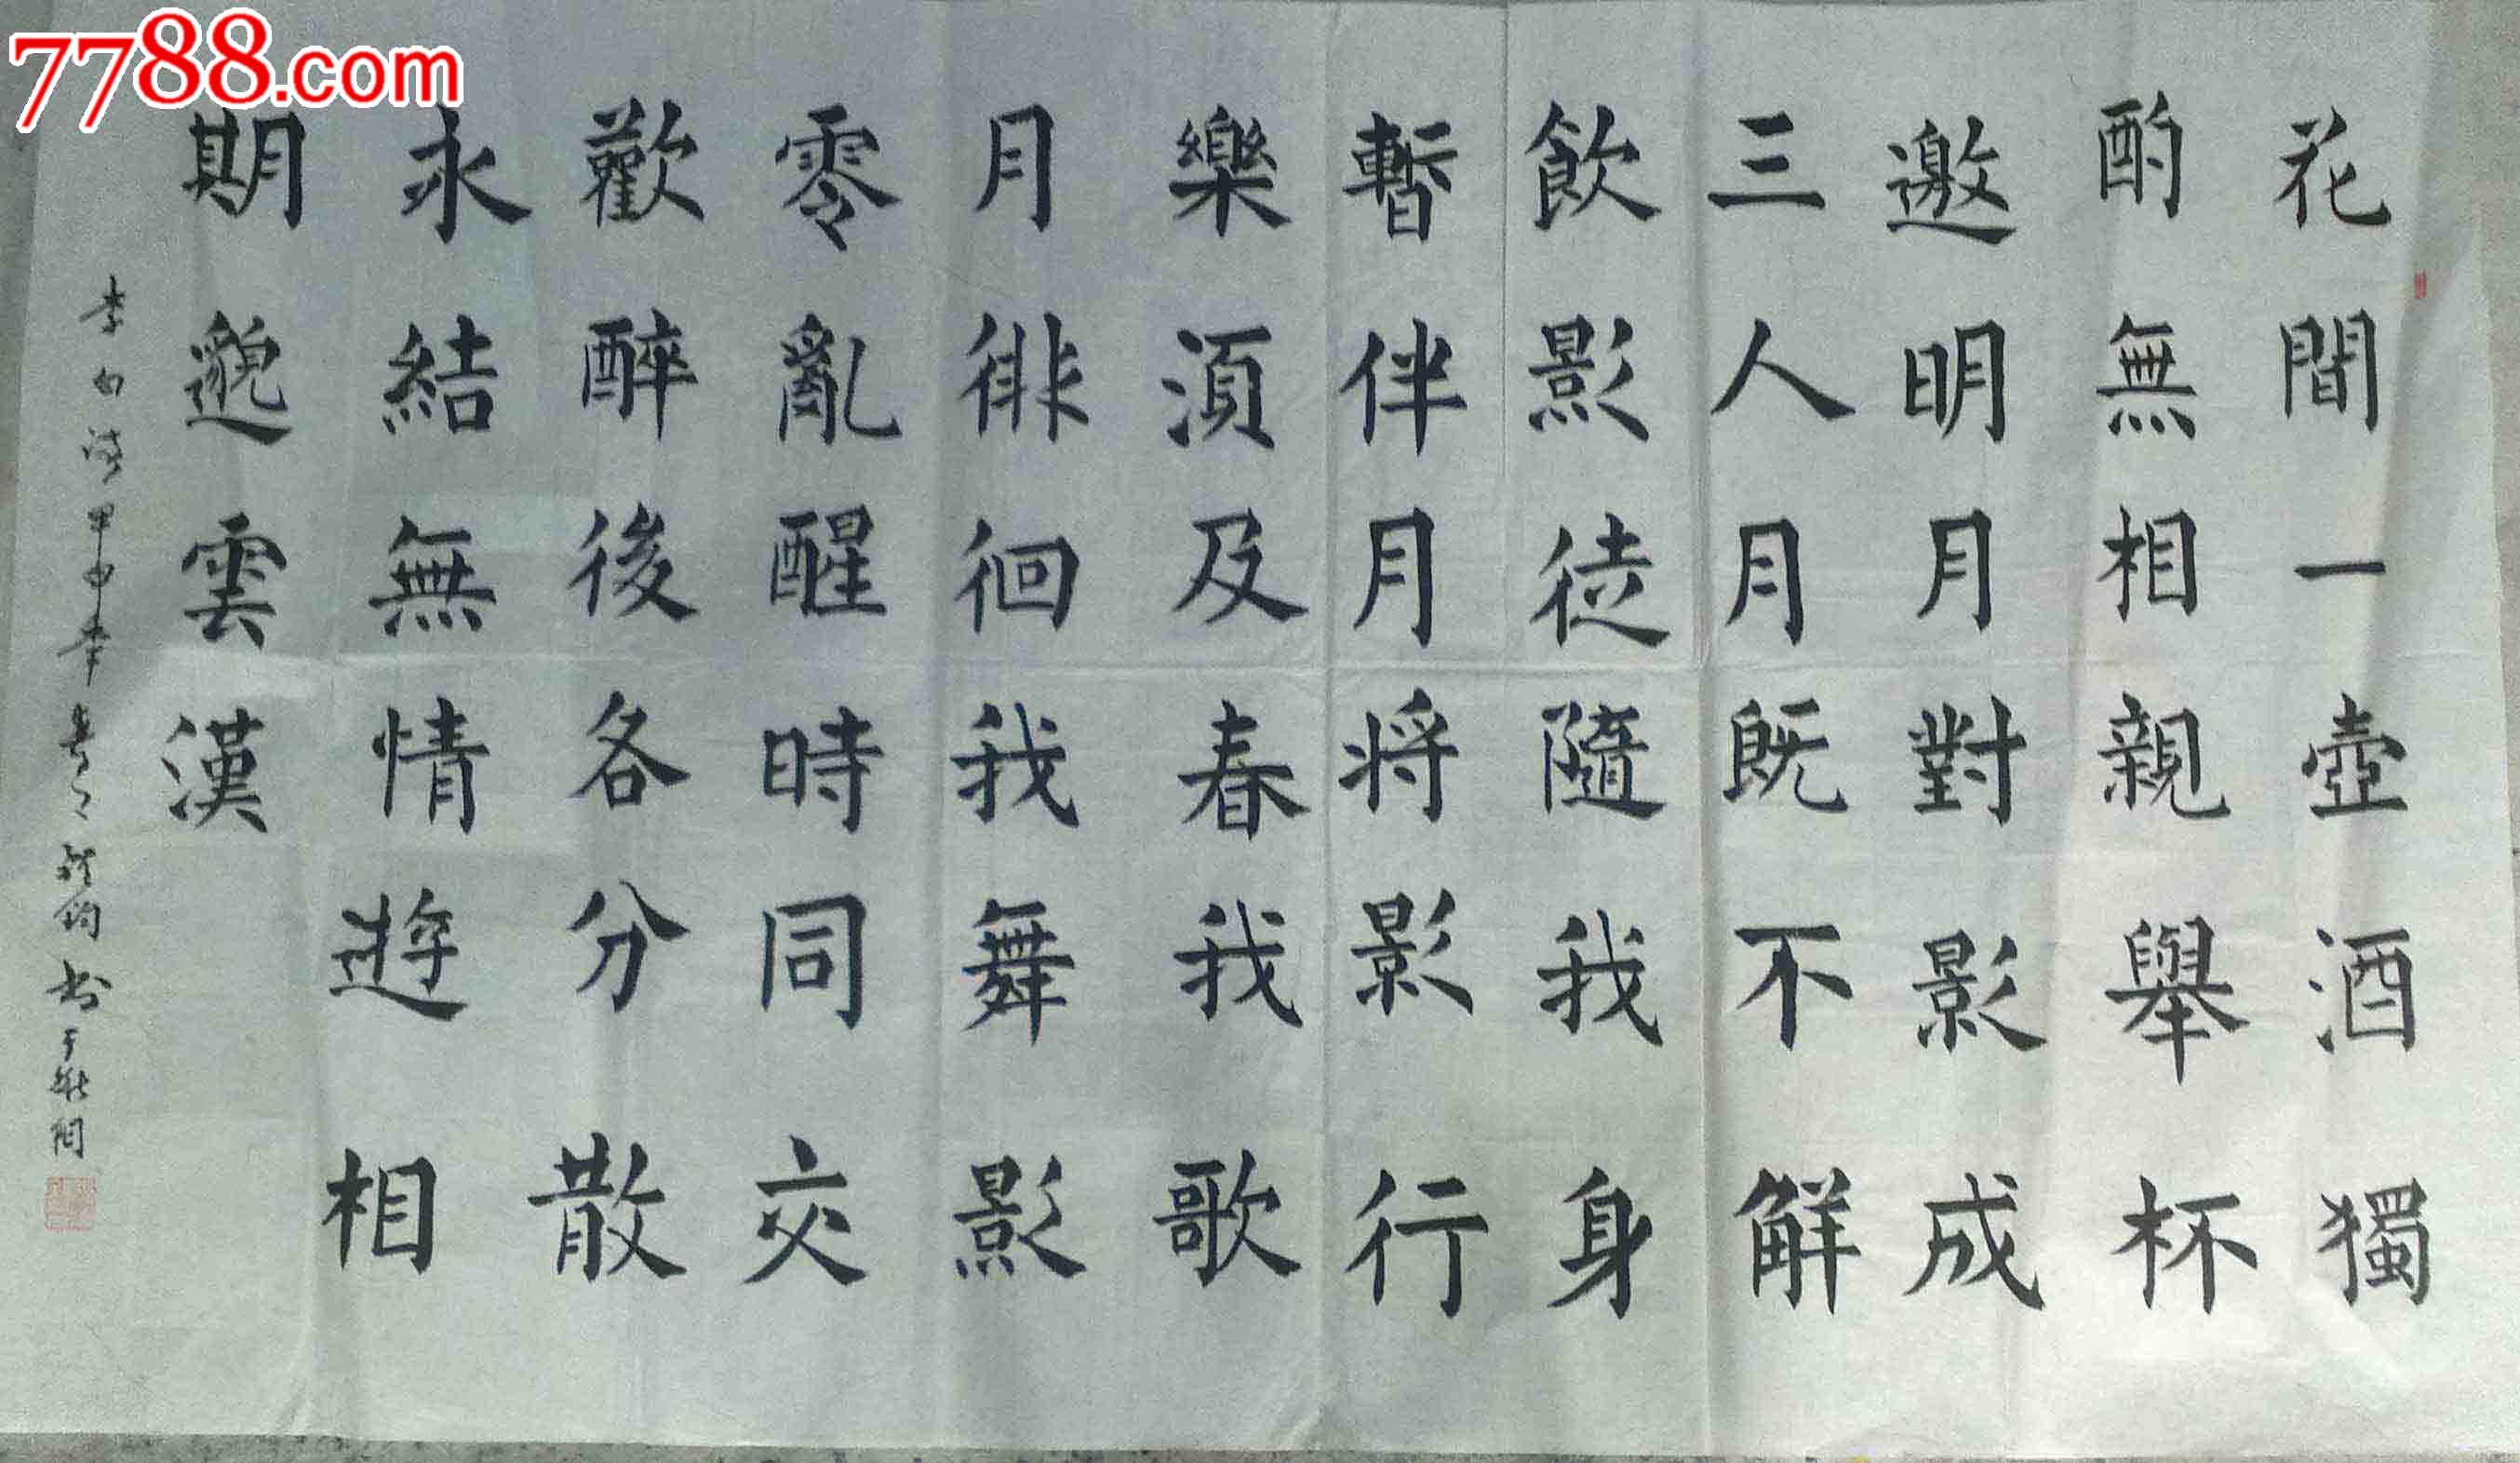 7788.com
花間一壺酒獨
酌無相親舉杯
邀明月對影成
三人月既不解
飲影徒隨我身
暫伴月将影行
樂湏及春我歌
月徘徊我舞影
零亂醒時同交
歡醉後各分散
永結無情遊相
期邈雲漢
李白詩甲申年